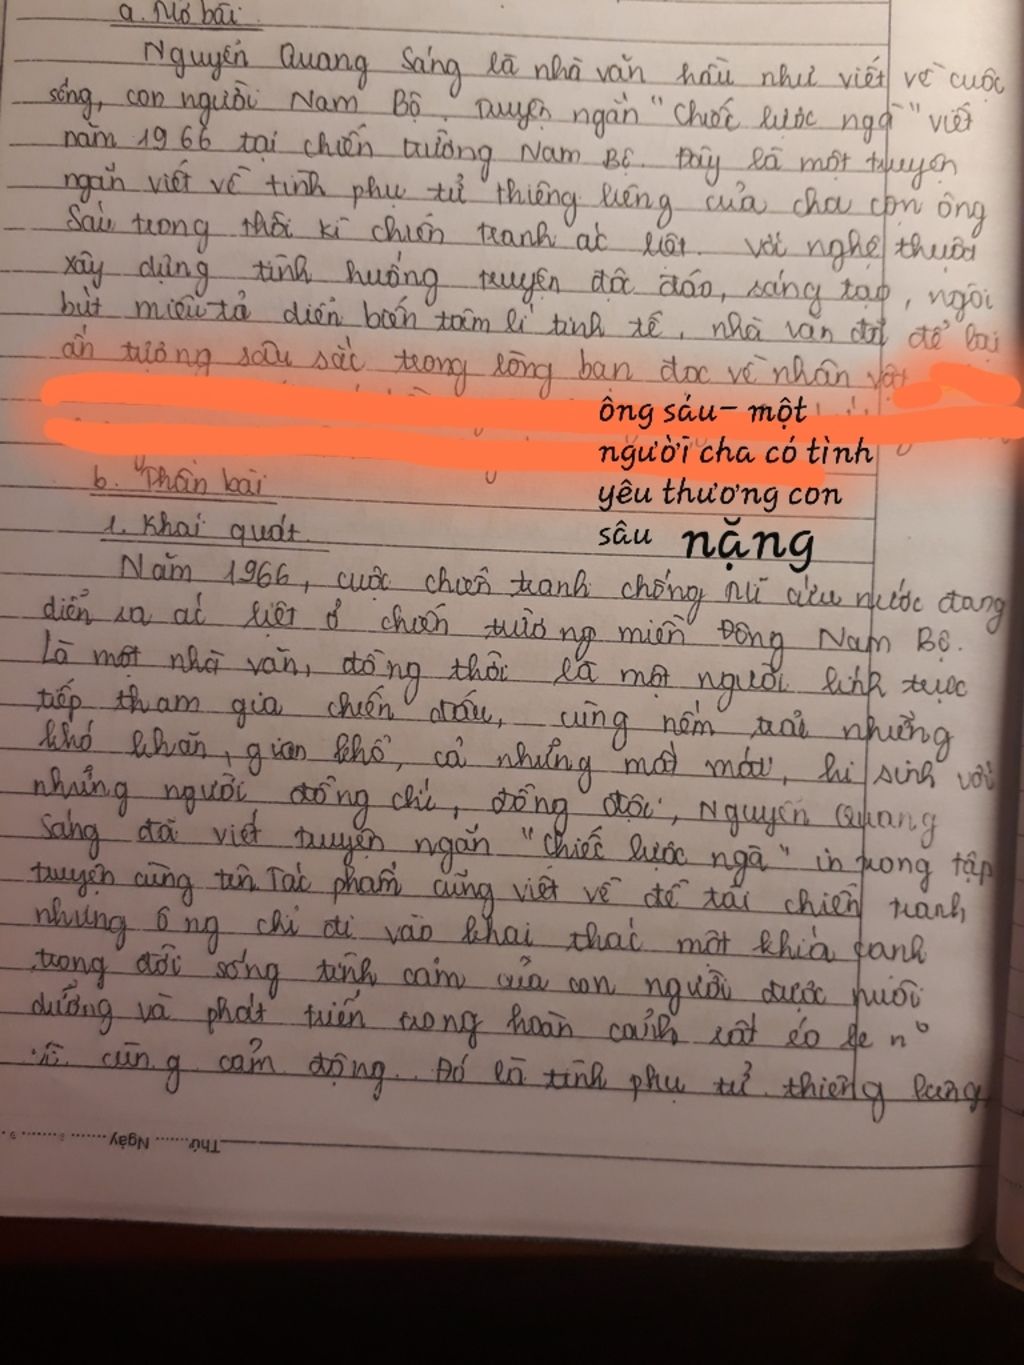 a. Mở bài
Nguyễn Quang Sáng là nhà văn hầu như viết về cuộc
sống, con người Nam Bộ. Truyện ngắn "Chiếc lược ngà" viết
năm 1966 tại chiến trường Nam Bộ. Đây là một truyện
ngắn viết về tình phụ tử thiêng liêng của cha con ông
Sáu trong thời kì chiến tranh ác liệt. Với nghệ thuật
xây dựng tình huống truyện độc đáo, sáng tạo, ngòi
bút miêu tả diễn biến tâm lí tinh tế, nhà văn đã để lại
ấn tượng sâu sắc trong lòng bạn đọc về nhân vật
ông sáu- một
người cha có tình
yêu thương con
sâu nặng
b. Thân bài
1. Khái quát
Năm 1966, cuộc chiến tranh chống Mĩ cứu nước đang
diễn ra ác liệt ở chiến trường miền Đông Nam Bộ.
Là một nhà văn, đồng thời là một người lính trực
tiếp tham gia chiến đấu, cùng nếm trải những
khó khăn, gian khổ, cả những mất mát, hi sinh với
những người đồng chí, đồng đội, Nguyễn Quang
Sáng đã viết truyện ngắn "Chiếc lược ngà" in trong tập
truyện cùng tên. Tác phẩm cũng viết về đề tài chiến tranh,
nhưng ông chỉ đi vào khai thác một khía cạnh
trong đời sống tình cảm của con người được nuôi
dưỡng và phát triển trong hoàn cảnh rất éo le
vô cùng cảm động. Đó là tình phụ tử thiêng liêng
Thứ Ngày